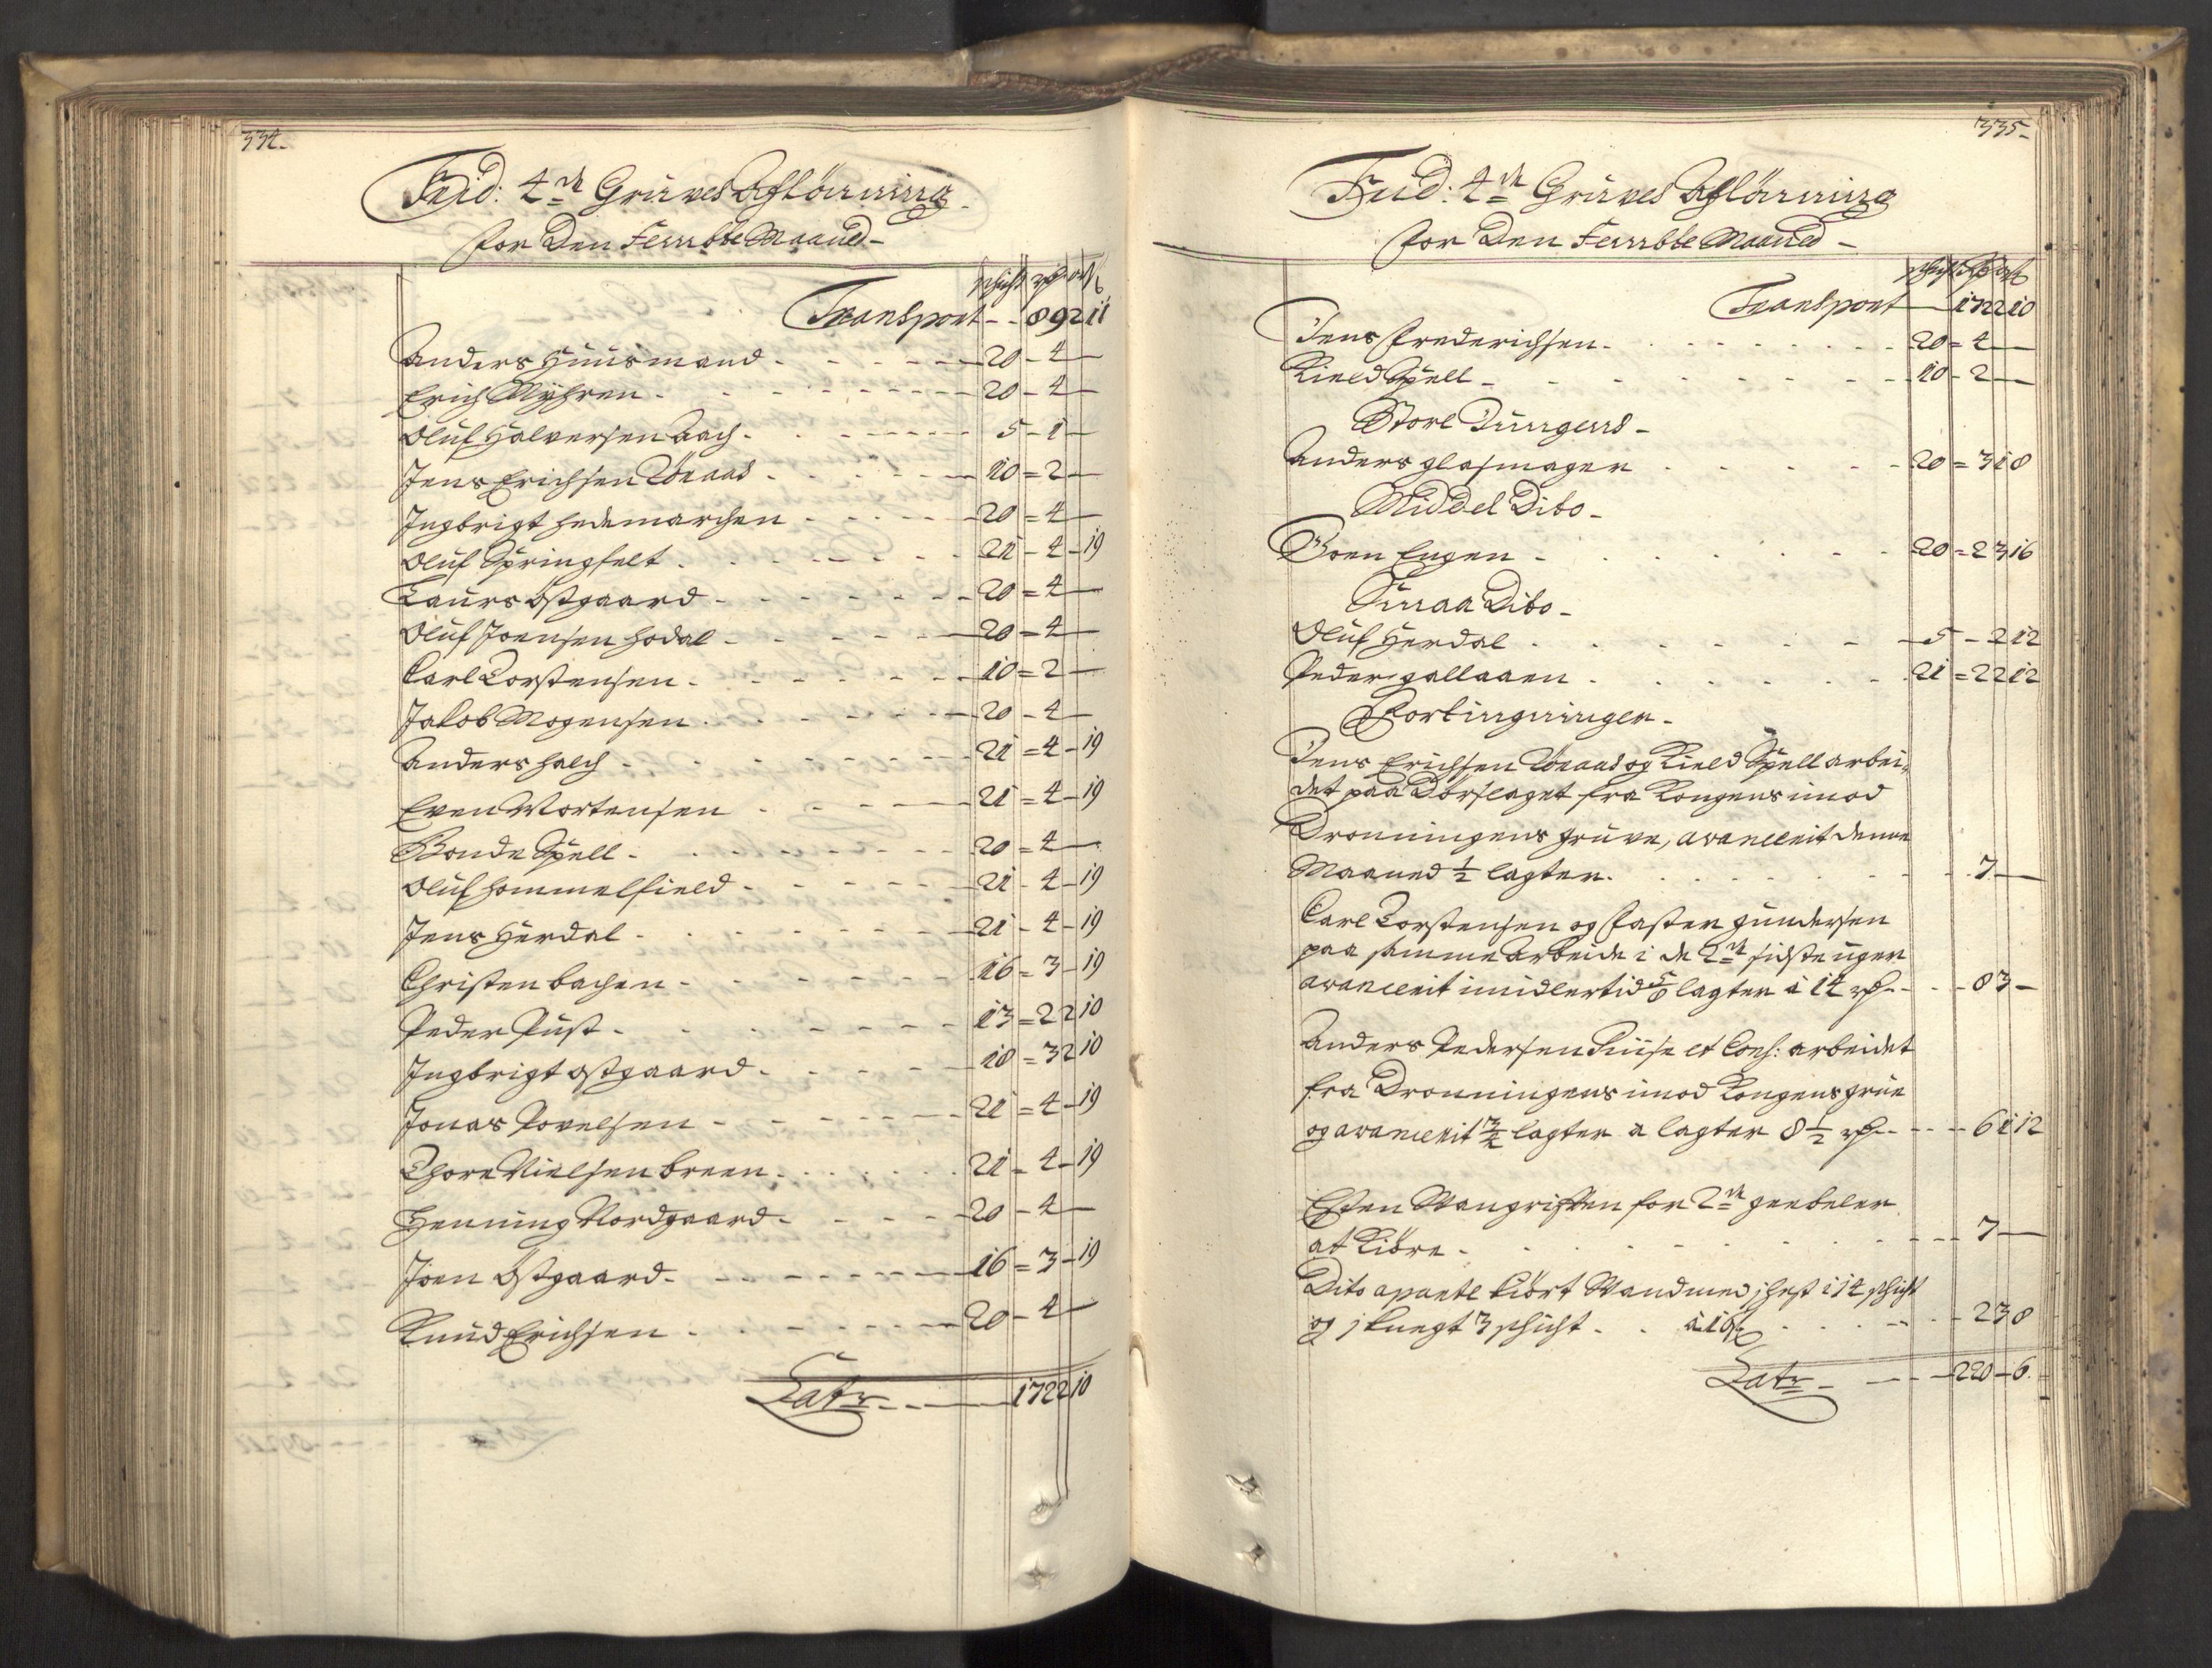 334.
Frid: 4de Gruves Aflönning
for Den Femte Maaned
schicht rdr ort s
Transport - - 89 2 11
Anders Huusmand - 20 - 4 -
Erich Myhren - 20 - 4 -
Oluf Halversen Aach - 5 - 1 -
Jens Erichsen Wönaas - 10 = 2 -
Ingbrigt Hedemarchen - 20 = 4 -
Oluf Springfelt - 21 - 4 - 19
Laurs Østgaard - 20 = 4 -
Oluf Joensen Hodal - 20 - 4 -
Carl Torstensen - 10 = 2 -
Jakob Mogensen - 20 - 4 -
Anders Halch - 21 = 4 - 19
Even Mortensen - 21 = 4 - 19
Bonde Spell - 20 = 4 -
Oluf Hommelfield - 21 - 4 - 19
Jens Hørdal - 21 - 4 - 19
Christen Bachen - 16 = 3 - 19
Peder Püst - 13 = 2 2 10
Ingbrigt Østgaard - 18 = 3 2 10
Jonas Povelsen - 21 = 4 - 19
Thore Nielsen Breen - 21 = 4 - 19
Henning Nordgaard - 20 - 4 -
Joen Østgaard - 16 = 3 - 19
Knud Erichsen - 20 - 4 -
Latr - - 172 2 10
335.
Frid: 4de Gruves Aflönning
for Den Femte Maaned
Transport - 172 2 10
Jens Frederichsen - 20 = 4 -
Kield Spell - 10 - 2 -
Store Dungens -
Anders Glasmager - 20 = 3 1 8
Middel Dito -
Joen Engen - 20 = 2 3 16
Smaa Dito -
Oluf Herdal - 5 - 2 12
Peder Gallaaen - 21 = 2 2 12
Fortingninger -
Jens Erichsen Wönaas og Kield Spell arbei-
det paa Dørslaget fra Kongens imod
Dronningens gruve, avancerit denne
Maaned 1/2 lagter - 7 -
Carl Torstensen og Faster Gundersen
paa samme Arbeide i de 2de sidste uger
avancerit imidlertid 5/8 lagter à 14 rdr - 8 3 -
Anders Pedersen Riise et Cons: arbeidet
fra Dronningens imod Kongens grue
og avancerit 3/4 lagter a lagter 8 1/2 rdr - 6 1 12
Esten Mangriften for 2de
at Kiöre - 7 -
Dito aparte kiört Vand med j hest i 14 schicht
og j knegt 3 schicht à 16 s - 2 3 8
Latr - - 220 - 6